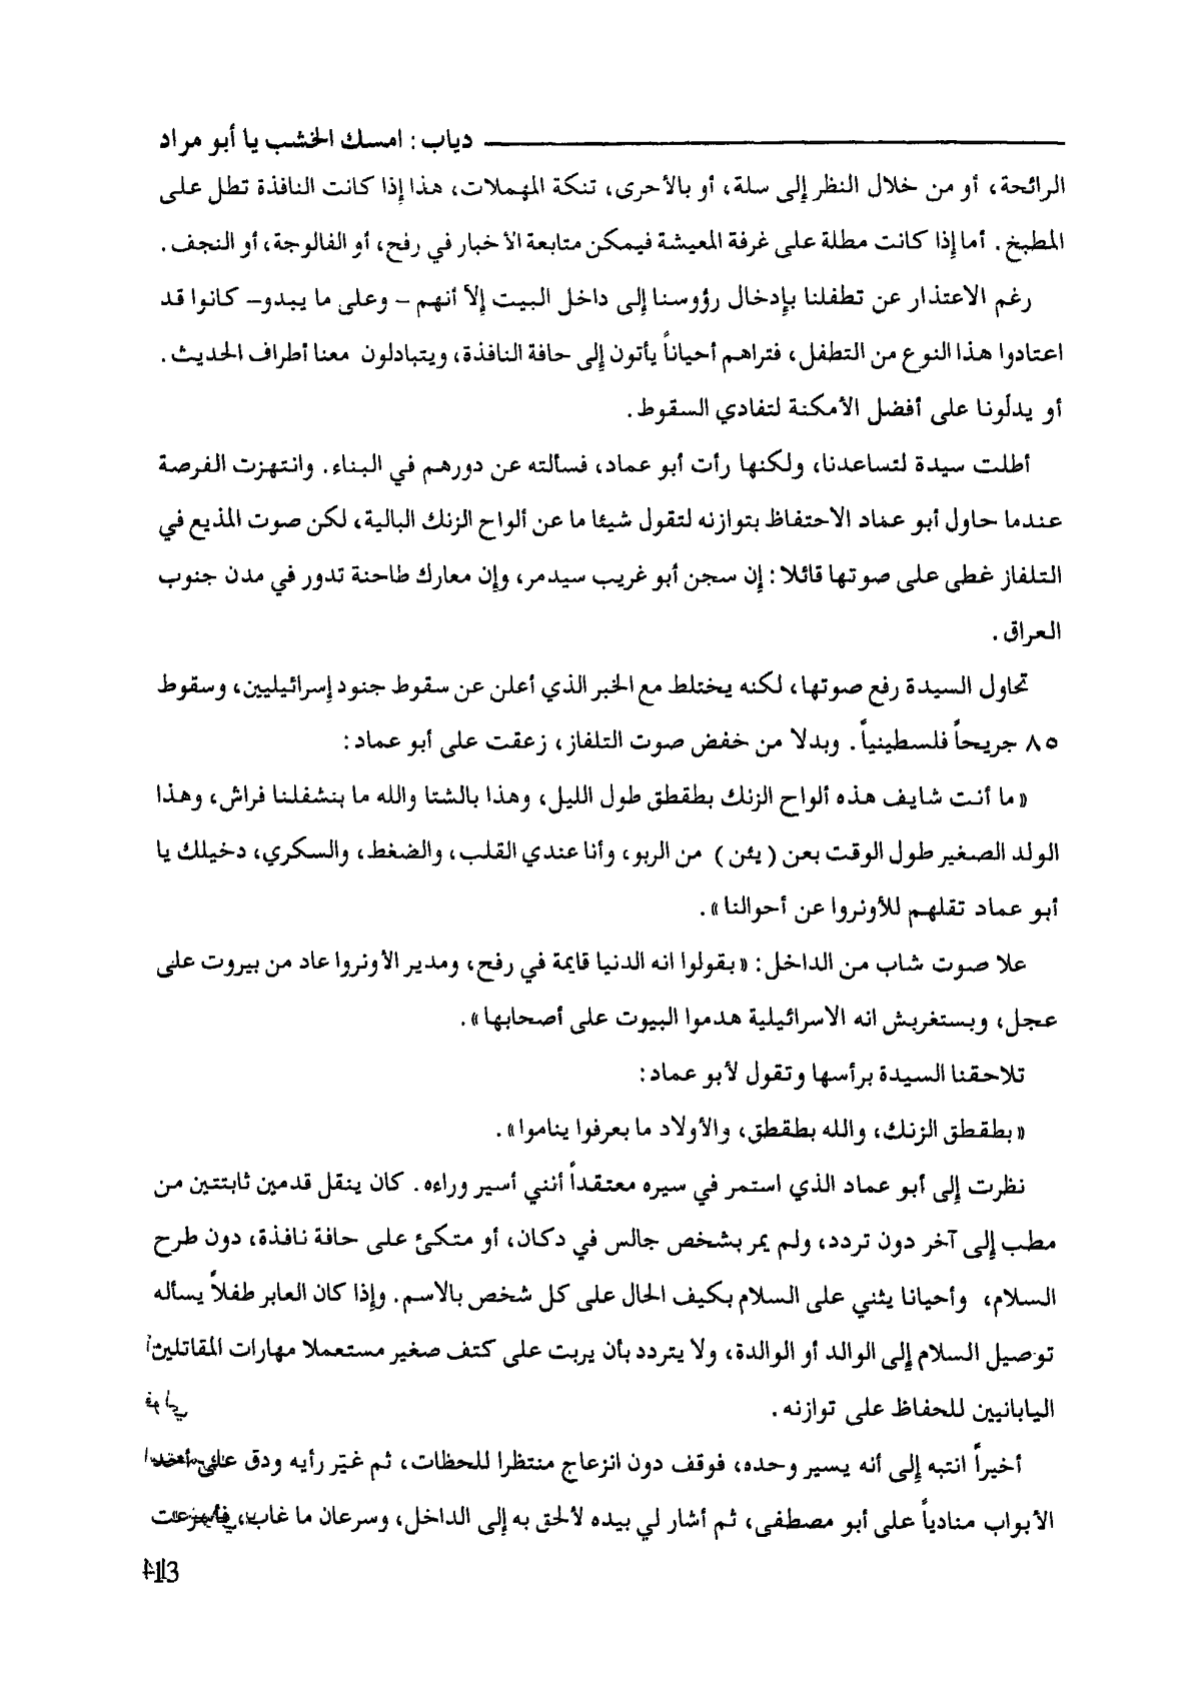 دياب : امسك الخشب يا أبو مراد
الرائحة، أو من خلال النظر إلى سلة، أو بالأحرى، تنكة المهملات، هذا إذا كانت النافذة تطل على
المطبخ. أما إذا كانت مطلة على غرفة المعيشة فيمكن متابعة الأخبار في رفح، أو الفالوجة، أو النجف.
رغم الاعتذار عن تطفلنا بإدخال رؤوسنا إلى داخل البيت إلاّ أنهم – وعلى ما يبدو– كانوا قد
اعتادوا هذا النوع من التطفل، فتراهم أحياناً يأتون إلى حافة النافذة، ويتبادلون معنا أطراف الحديث.
أو يدلّونا على أفضل الأمكنة لتفادي السقوط.
أطلت سيدة لتساعدنا، ولكنها رأت أبو عماد، فسألته عن دورهم في البناء. وانتهزت الفرصة
عندما حاول أبو عماد الاحتفاظ بتوازنه لتقول شيئا ما عن ألواح الزنك البالية، لكن صوت المذيع في
التلفاز غطى على صوتها قائلا: إن سجن أبو غريب سيدمر، وإن معارك طاحنة تدور في مدن جنوب
العراق.
تحاول السيدة رفع صوتها، لكنه يختلط مع الخبر الذي أعلن عن سقوط جنود إسرائيليين، وسقوط
٨٥ جريحاً فلسطينياً. وبدلا من خفض صوت التلفاز، زعقت على أبو عماد:
«ما أنت شايف هذه ألواح الزنك بطقطق طول الليل، وهذا بالشتا والله ما بنشفلنا فراش، وهذا
الولد الصغير طول الوقت بعن (يئن) من الربو، وأنا عندي القلب، والضغط، والسكري، دخيلك يا
أبو عماد تقلهم للأونروا عن أحوالنا».
علا صوت شاب من الداخل: «بقولوا انه الدنيا قايمة في رفح، ومدير الأونروا عاد من بيروت على
عجل، وبستغربش انه الاسرائيلية هدموا البيوت على أصحابها».
تلاحقنا السيدة برأسها وتقول لأبو عماد:
«بطقطق الزنك، والله بطقطق، والأولاد ما بعرفوا يناموا».
نظرت إلى أبو عماد الذي استمر في سيره معتقداً أنني أسير وراءه. كان ينقل قدمين ثابتتين من
مطب إلى آخر دون تردد، ولم يمر بشخص جالس في دكان، أو متكئ على حافة نافذة، دون طرح
السلام، وأحيانا يثني على السلام بكيف الحال على كل شخص بالاسم. وإذا كان العابر طفلاً يسأله
توصيل السلام إلى الوالد أو الوالدة، ولا يتردد بأن يربت على كتف صغير مستعملا مهارات المقاتلين
اليابانيين للحفاظ على توازنه.
أخيراً انتبه إلى أنه يسير وحده، فوقف دون انزعاج منتظرا للحظات، ثم غيّر رأيه ودق على أحد
الأبواب منادياً على أبو مصطفى، ثم أشار لي بيده لألحق به إلى الداخل، وسرعان ما غاب، فأسرعت